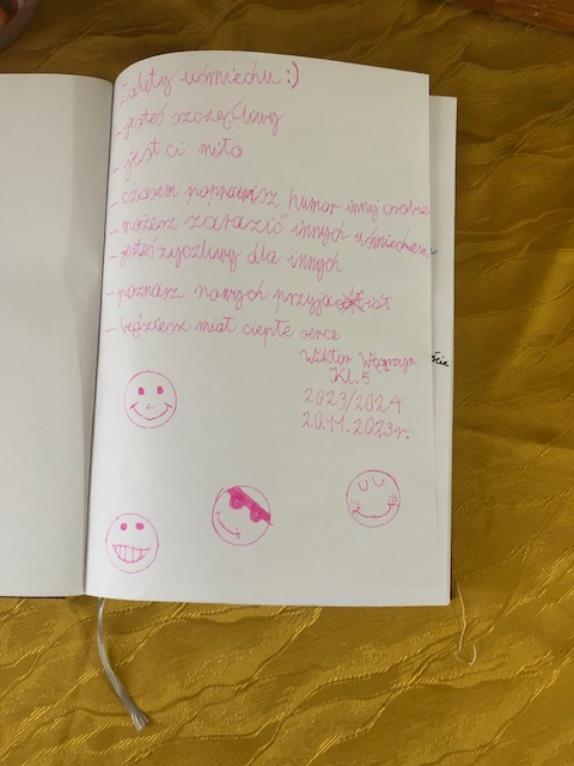 Zalety uśmiechu :)
- jesteś szczęśliwy
- jest ci miło
- czasem poprawisz humor innej osobie
- możesz zarazić innych uśmiechem
- jesteś życzliwy dla innych
- poznasz nowych przyjaciół
- będziesz miał ciepłe serce
Wiktor Węgrzyn
Kl. 5
2023/2024
20.11.2023r.